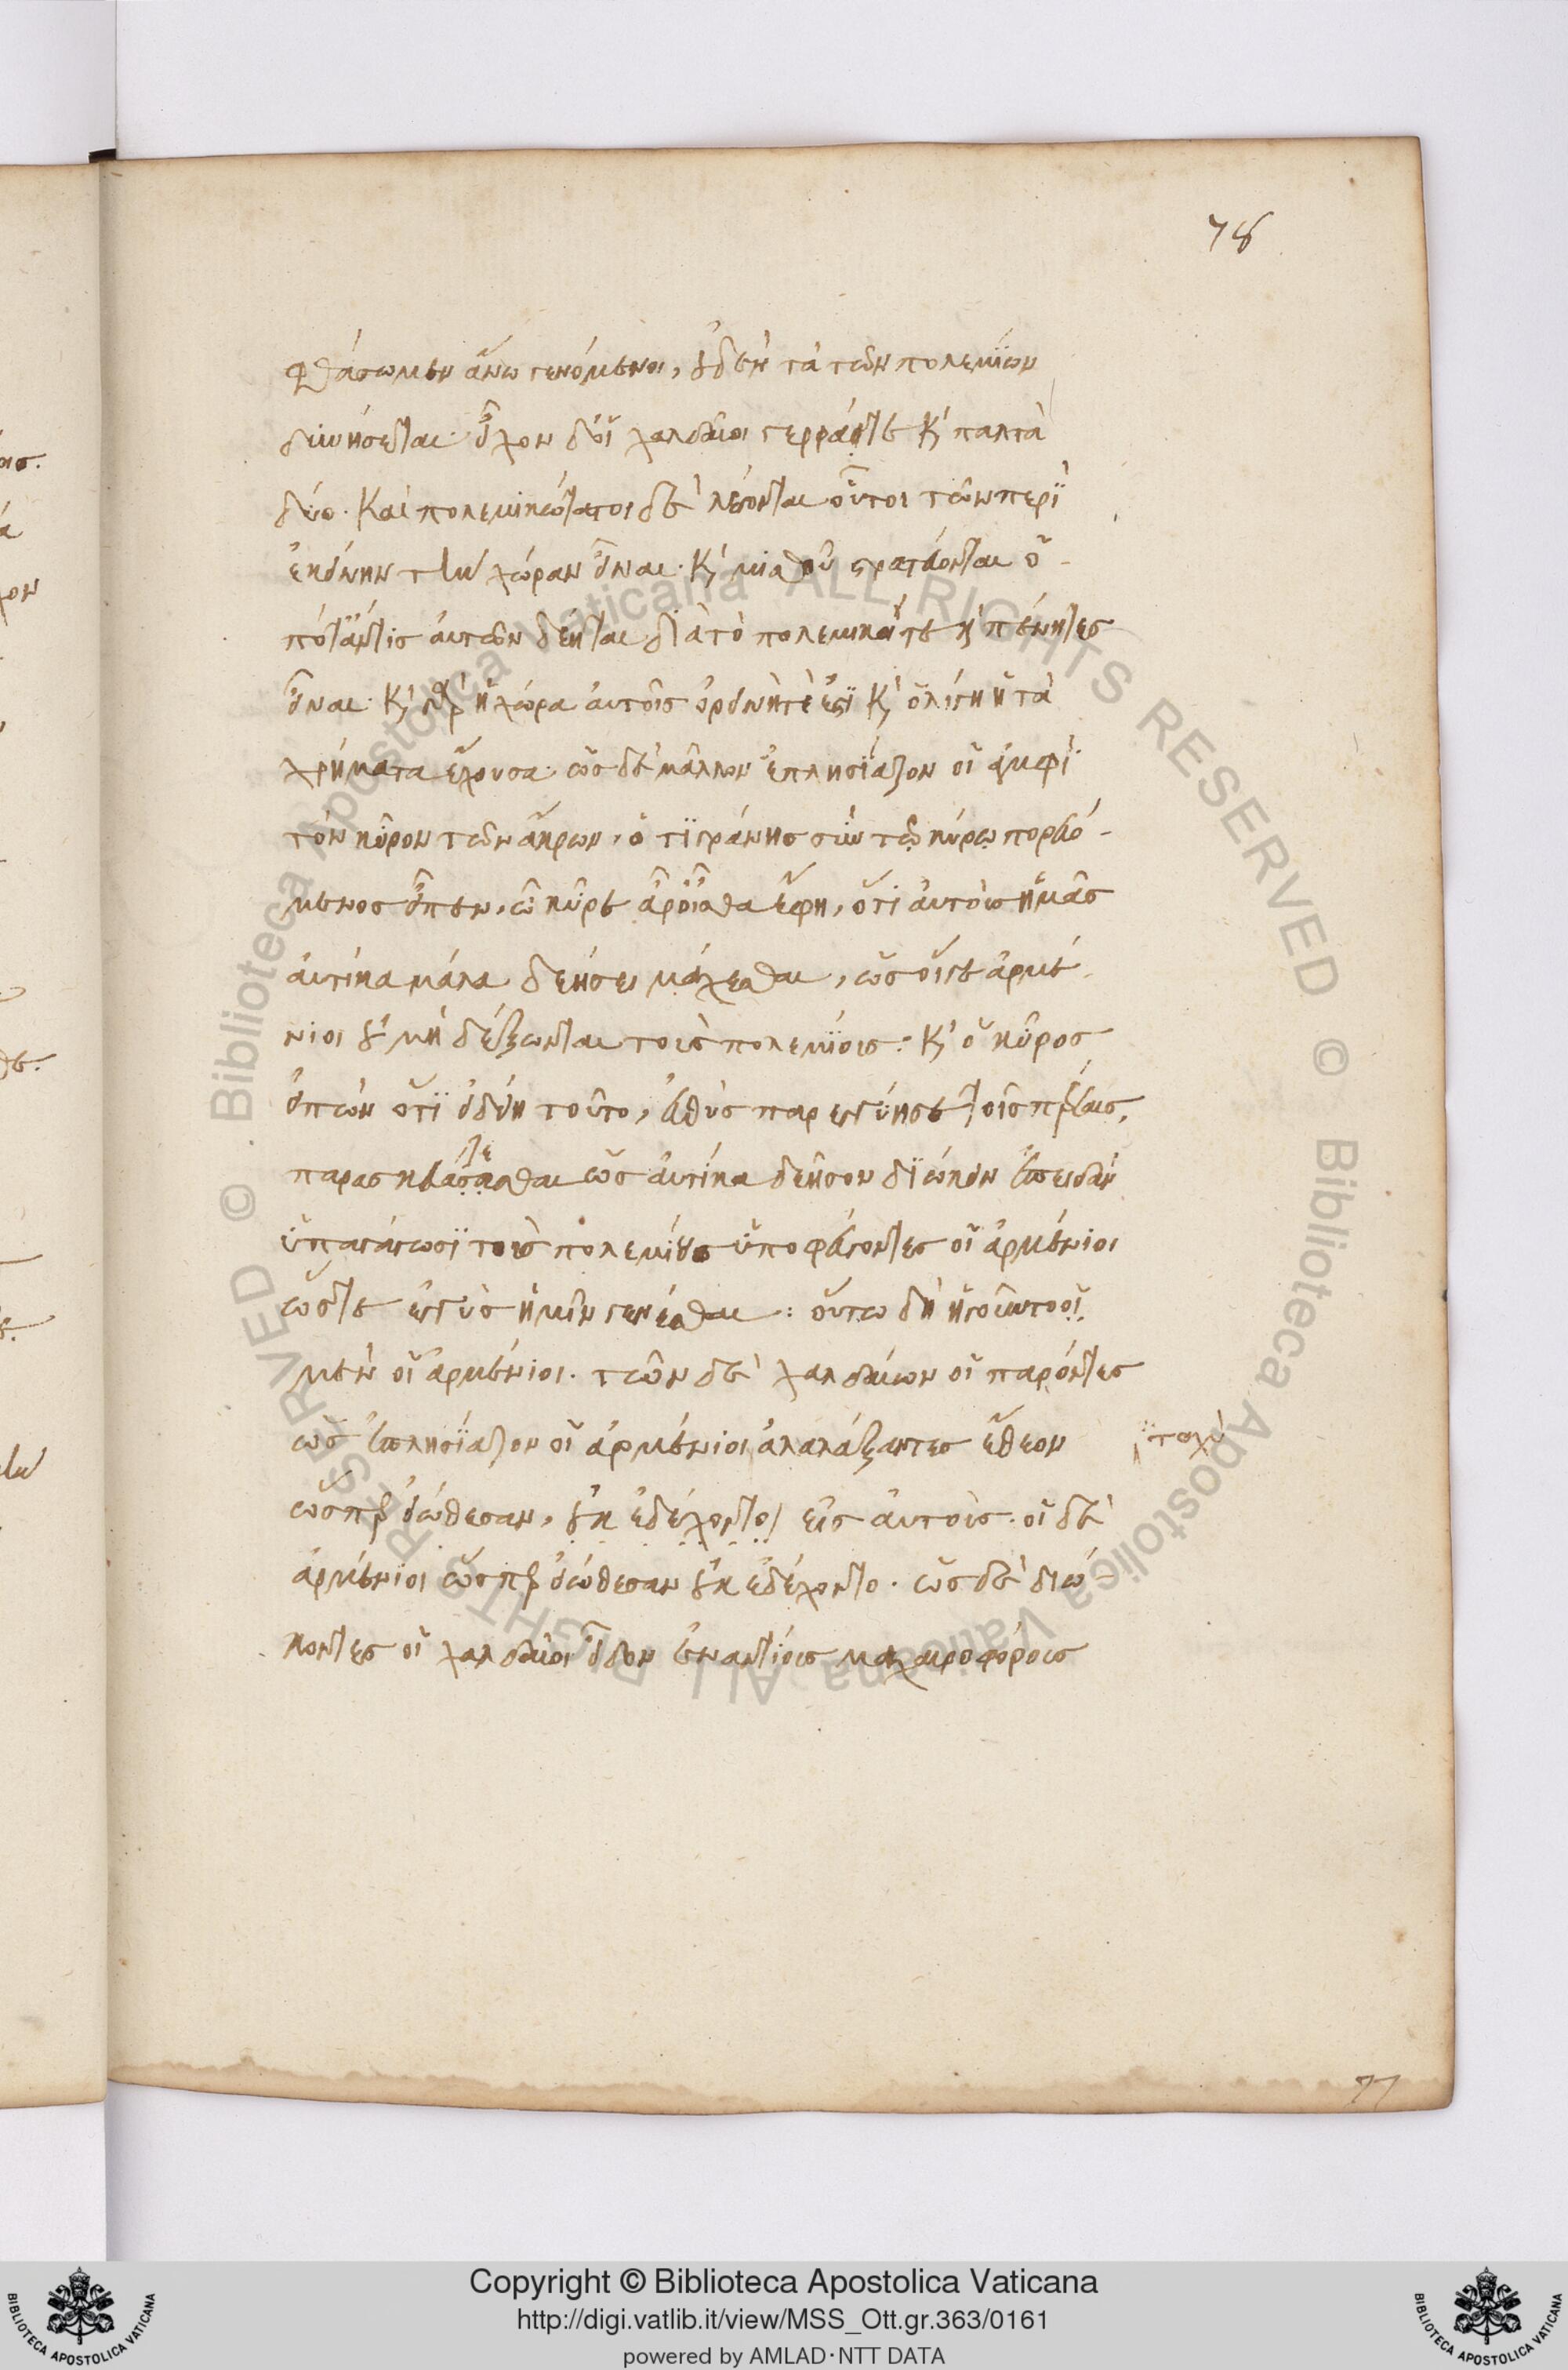 78
φθάσωμεν ἄνω γενόμενοι, οὐδὲν τὰ τῶν πολεμίων
δυνήσεται· εἶχον δὲ οἱ χαλδαῖοι γέρρά τε κ̀ παλτὰ
δύο. καὶ πολεμικώτατοι δὲ λέγονται οὗτοι τῶν περὶ
ἐκείνην τὴν χώραν εἶναι· κ̀ μισθοῦ στρατεύονται ὁ-
πόταν τις αὐτῶν δέηται διὰ τὸ πολεμικοί τε κ̀ πένητες
εἶναι· κ̀ γὰρ ἡ χώρα αὐτοῖς ὀρεινή τέ ἐστι κ̀ ὀλίγη ἡ τὰ
χρήματα ἔχουσα· ὡς δὲ μᾶλλον ἐπλησίαζον οἱ ἀμφὶ
τὸν κῦρον τῶν ἄκρων, ὁ τιγράνης σὺν τῷ κύρῳ πορευό-
μενος εἶπεν, ὦ κῦρε ἆρ' οἶσθα ἔφη, ὅτι αὐτοὺς ἡμᾶς
αὐτίκα μάλα δεήσει μάχεσθαι, ὡς οἵ γε ἀρμέ-
νιοι οὐ μὴ δέξωνται τοὺς πολεμίους: κ̀ ὁ κῦρος
εἰπὼν ὅτι εἰδείη τοῦτο, εὐθὺς παρεγγύησε τοῖς πέρσαις,
παρασκευάσασθαι ὡς αὐτίκα δεῆσον διώκειν ἐπειδὰν
ὑπαγάγωσι τοὺς πολεμίους ὑποφεύγοντες οἱ ἀρμένιοι
ὥστε ἐγγὺς ἡμῖν γενέσθαι: οὕτω δὴ ἡγοῦντο οἱ
μὲν οἱ ἀρμένιοι. τῶν δὲ χαλδαίων οἱ παρόντες
ὡς ἐπλησίαζον οἱ ἀρμένιοι ἀλαλάξαντες ἔθεον
ταχὺ
ὥσπερ εἰώθεσαν, οὐκ ἐδέχοντο/ εἰς αὐτούς. οἱ δὲ
ἀρμένιοι ὥσπερ εἰώθεσαν οὐκ ἐδέχοντο. ὡς δὲ διώ-
κοντες οἱ χαλδαῖοι εἶδον ἐναντίους μαχαιροφόρους
77
Copyright © Biblioteca Apostolica Vaticana
http://digi.vatlib.it/view/MSS_Ott.gr.363/0161
powered by AMLAD·NTT DATA